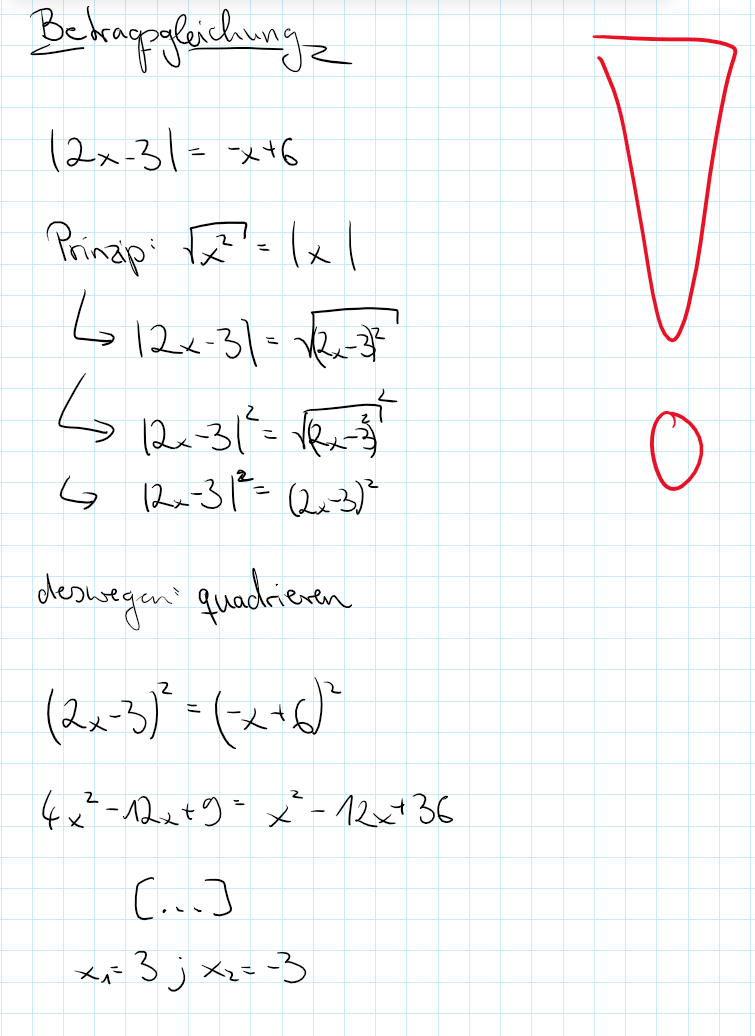 Betragsgleichung
|2x-3| = -x+6
Prinzip: √x² = |x|
↳ |2x-3| = √(2x-3)²
↳ |2x-3|² = √(2x-3)²²
↳ |2x-3|² = (2x-3)²
deswegen: quadrieren
(2x-3)² = (-x+6)²
4x²-12x+9 = x²-12x+36
[...]
x₁=3; x₂=-3